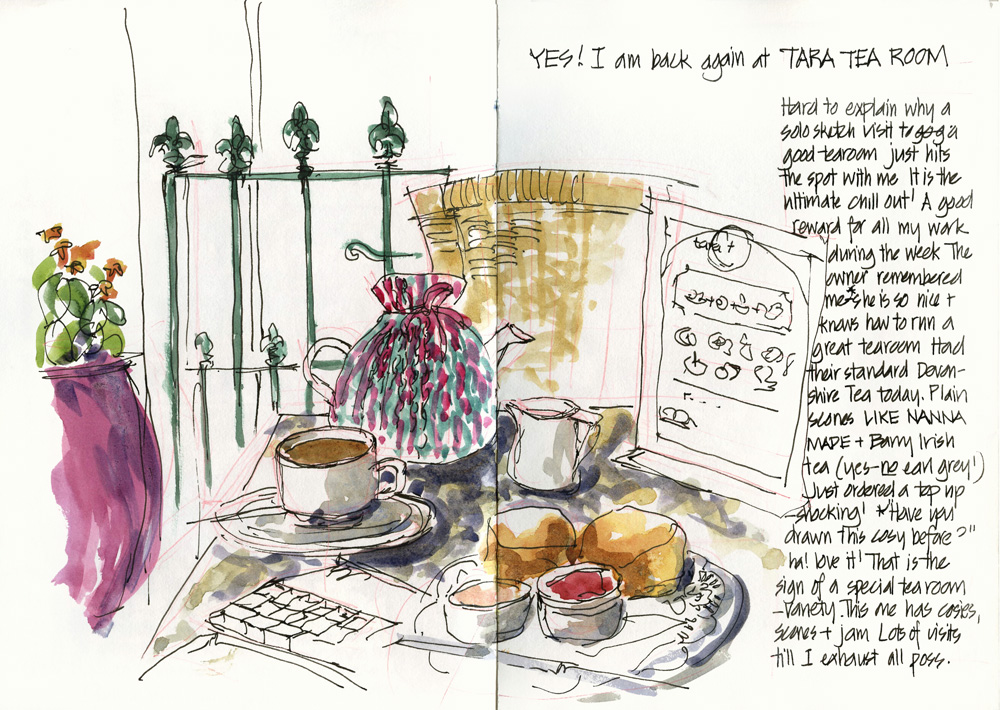 YES! I am back again at TARA TEA ROOM
Hard to explain why a
solo sketch visit to a
good tearoom just hits
the spot with me It is the
ultimate chill out! A good
reward for all my work
during the week The
owner remembered
me she is so nice +
knows how to run a
great tearoom Had
their standard Devon-
shire Tea today. Plain
scones LIKE NANNA
MADE + Barry Irish
tea (yes-no earl grey!)
Just ordered a top up
-shocking! "Have you
drawn this cosy before?"
ha! love it! That is the
sign of a special tearoom
-variety This one has cosies,
scones + jam Lots of visits
till I exhaust all poss.
tara t